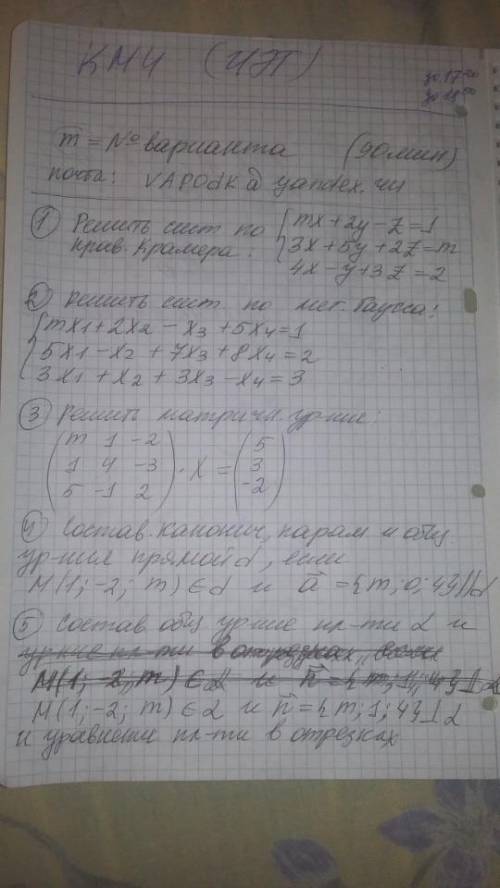 КМ4 (ИЭТ)
до 17⁰⁰
до 18⁰⁰
m = № варианта (90 мин)
почта: VAPOdK@yandex.ru
① Решить сист. по крив. Крамера:
{mx+2y-z=1
3x+5y+2z=m
4x-y+3z=2
2 Решить сист. по мет. Гаусса:
{mx1+2x2-x3+5x4=1
5x1-x2+7x3+8x4=2
3x1+x2+3x3-x4=3
③ Решить матричн. ур-ние:
(m 1 -2
1 4 -3
5 -1 2) · X = (5
3
-2)
④ Состав. канонич, парам и общ
ур-ния прямой d, если
M(1; -2; m) ∈ d и a = {m; 0; 4} || d
⑤ Состав. общ ур-ние пл-ти α и
ур-ние пл-ти в отрезках, если
M(1; -2; m) ∈ α и n = {m; 1; 4} ⊥ α
M(1; -2; m) ∈ α и n = {m; 1; 4} ⊥ α
и уравнение пл-ти в отрезках